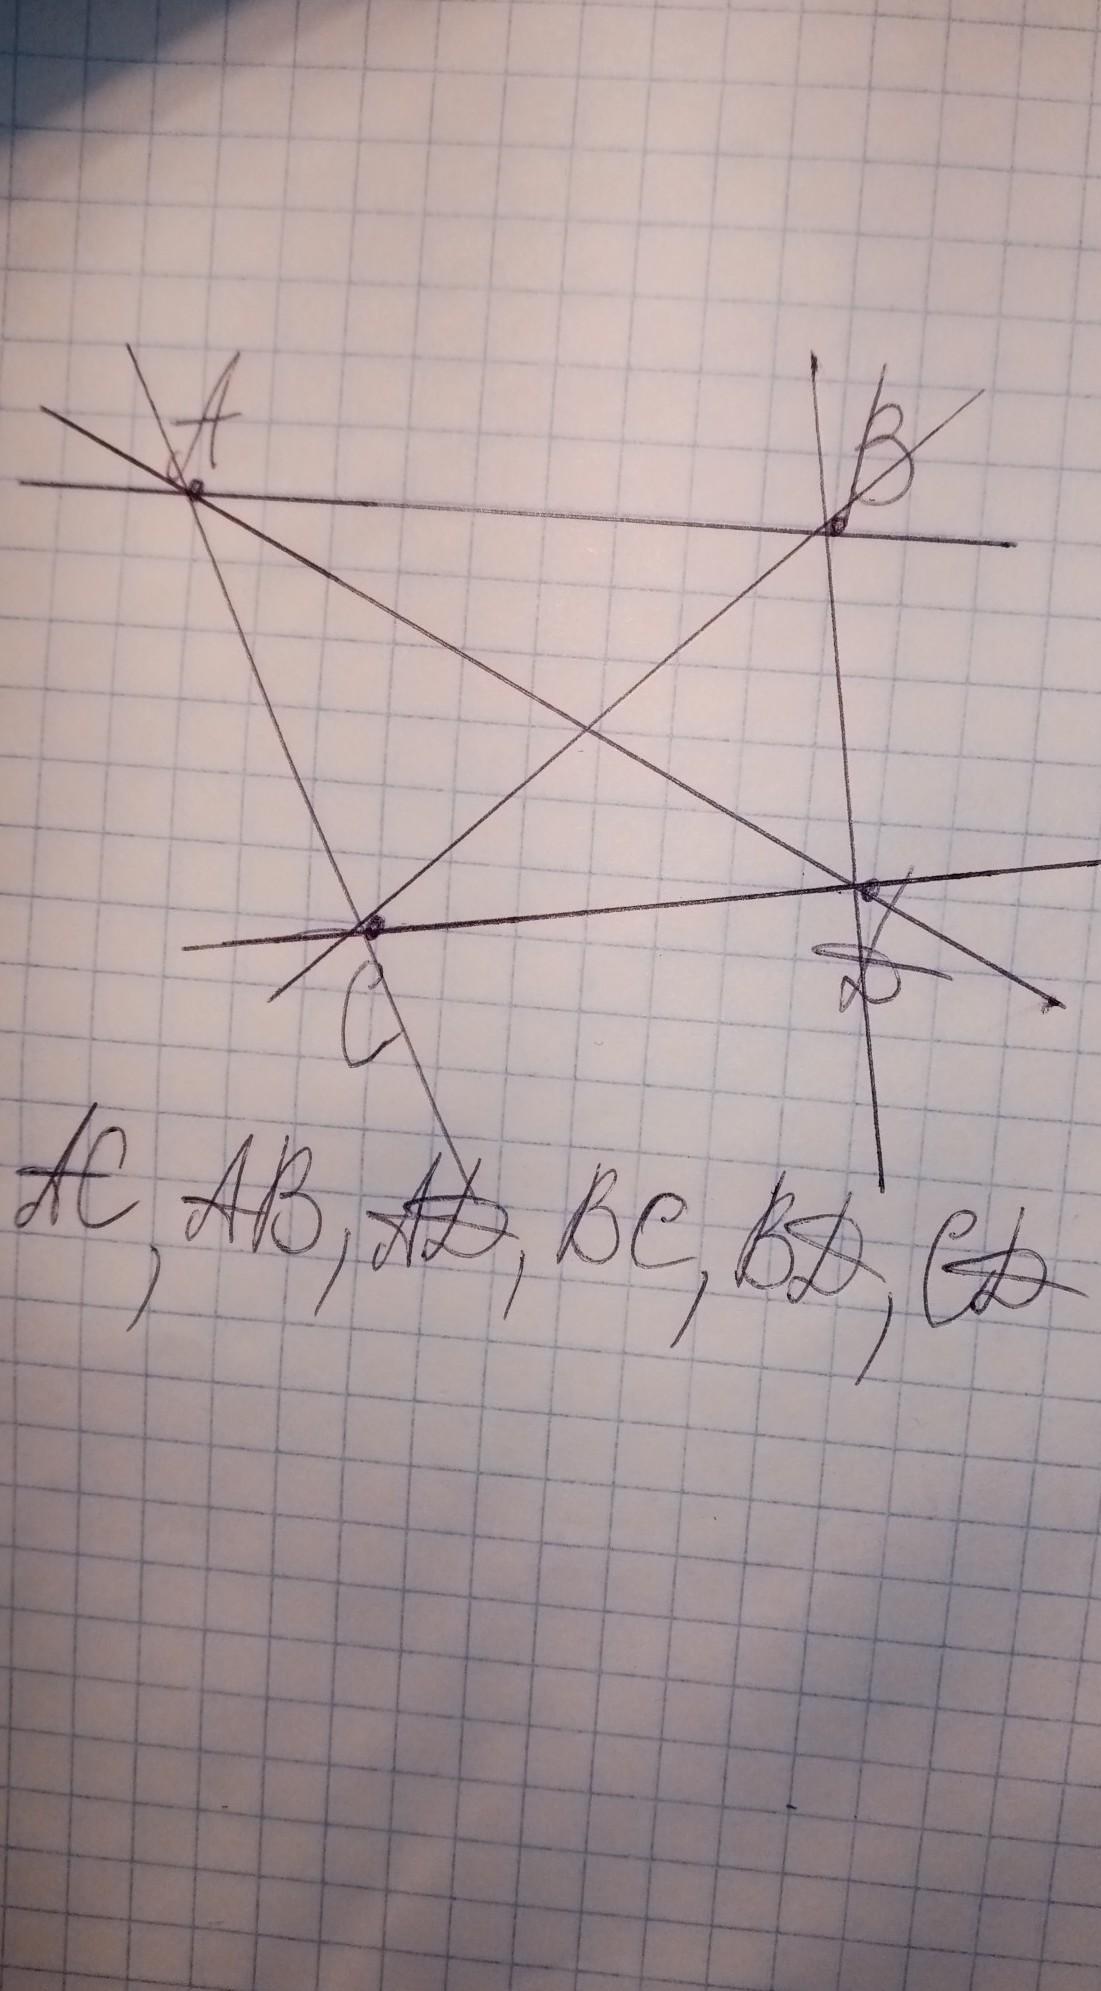 A
B
C
D
AC, AB, AD, BC, BD, CD